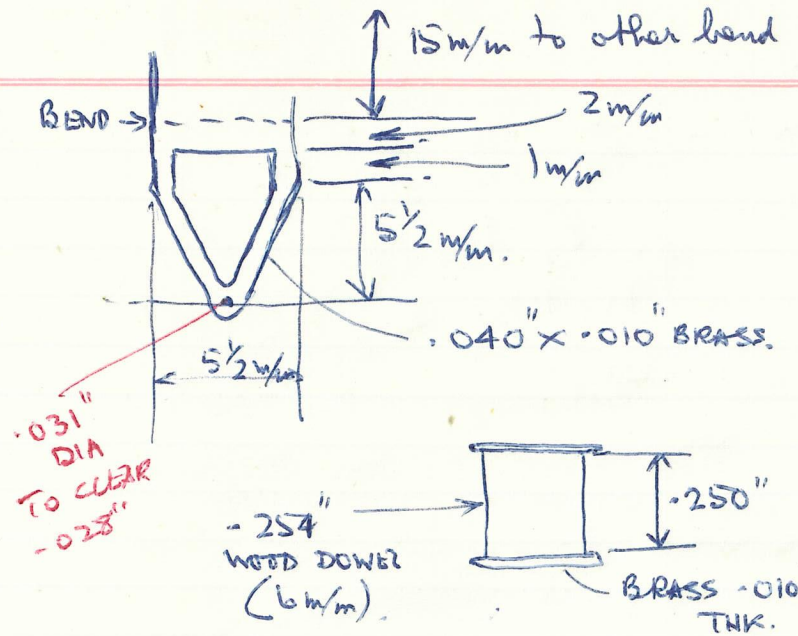 15 m/m to other bend
BEND
2 m/m
1 m/m
5 1/2 m/m.
.040" X .010" BRASS.
5 1/2 m/m
.031"
DIA
TO CLEAR
.028"
.254"
WOOD DOWEL
(6 m/m).
.250"
BRASS .010
THK.